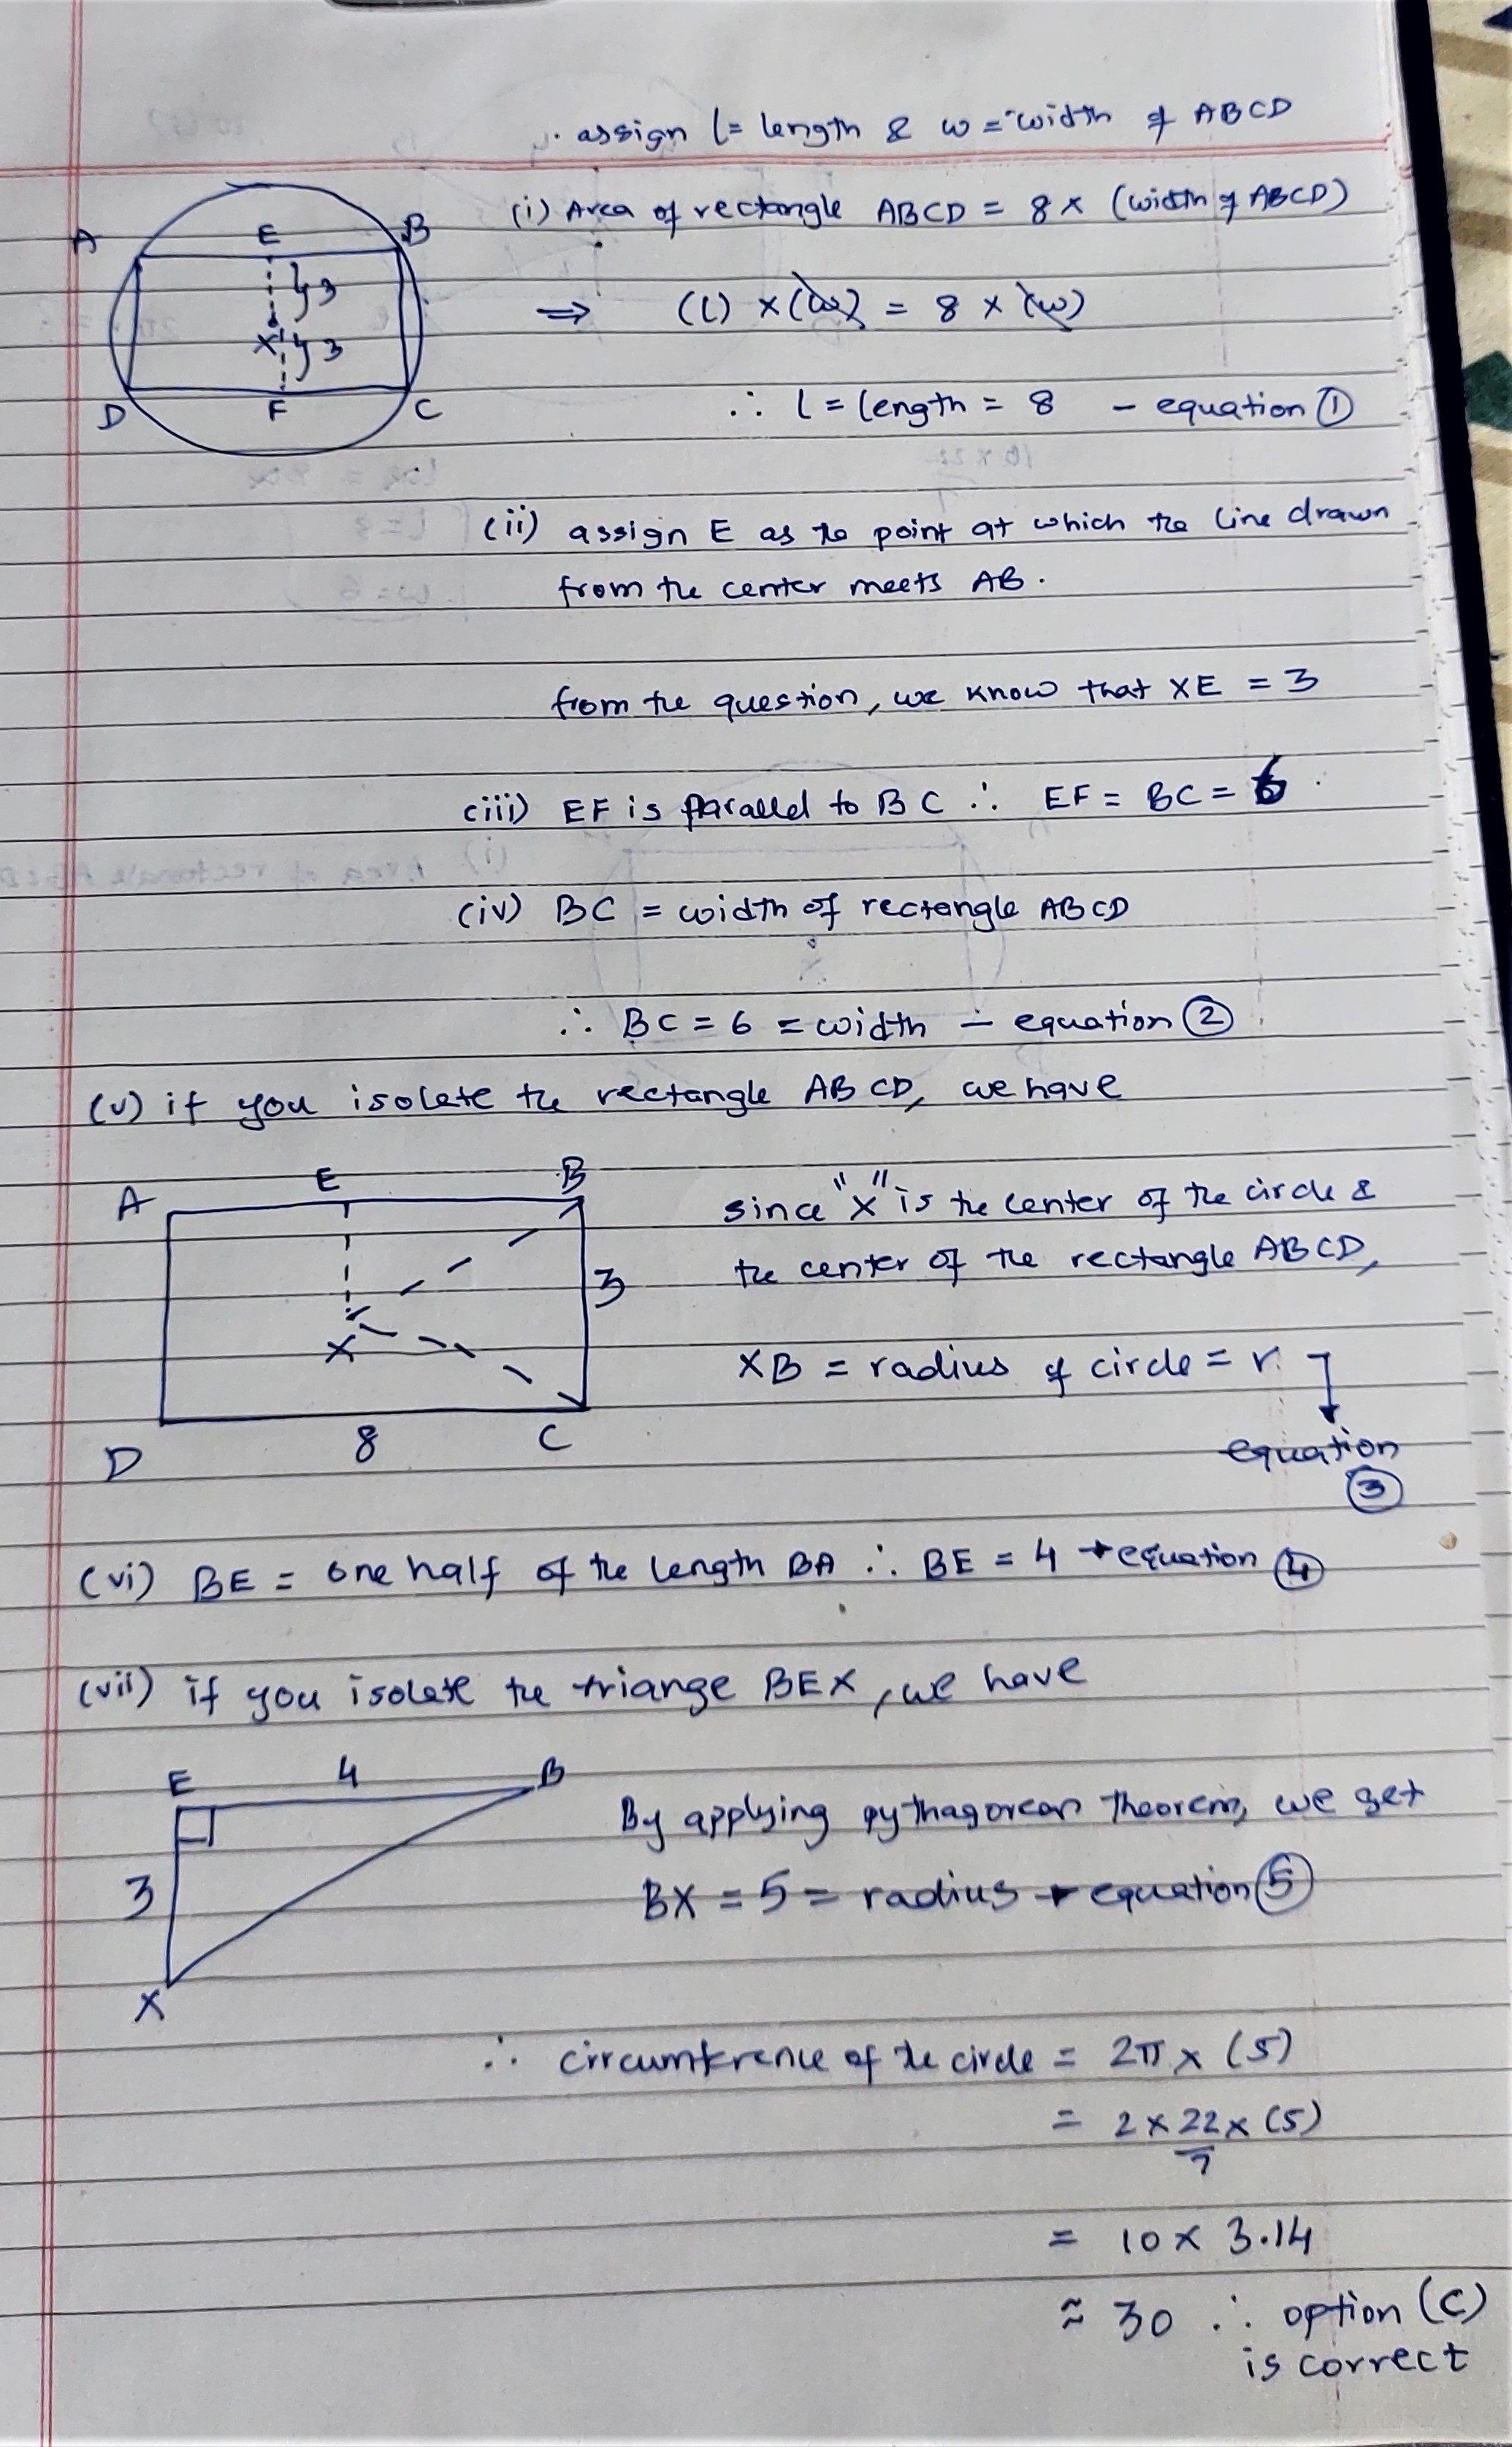 . assign l = length & w = width of ABCD
(i) Area of rectangle ABCD = 8 x (width of ABCD)
A E B
3
⇒ (l) x (w) = 8 x (w)
X 3
D F C
∴ l = length = 8 – equation ①
(ii) assign E as the point at which the line drawn
from the center meets AB.
from the question, we know that XE = 3
(iii) EF is parallel to BC ∴ EF = BC = 6
(iv) BC = width of rectangle ABCD
∴ BC = 6 = width – equation ②
(v) if you isolate the rectangle ABCD, we have
A E B
since "X" is the center of the circle &
3
the center of the rectangle ABCD,
X
XB = radius of circle = r
D 8 C
equation
③
(vi) BE = one half of the length BA ∴ BE = 4 → equation ④
(vii) if you isolate the triange BEX, we have
E 4 B
By applying pythagorean theorem, we get
3
BX = 5 = radius → equation ⑤
X
∴ circumference of the circle = 2π x (5)
= 2 x 22/7 x (5)
= 10 x 3.14
≈ 30 ∴ option (C)
is correct